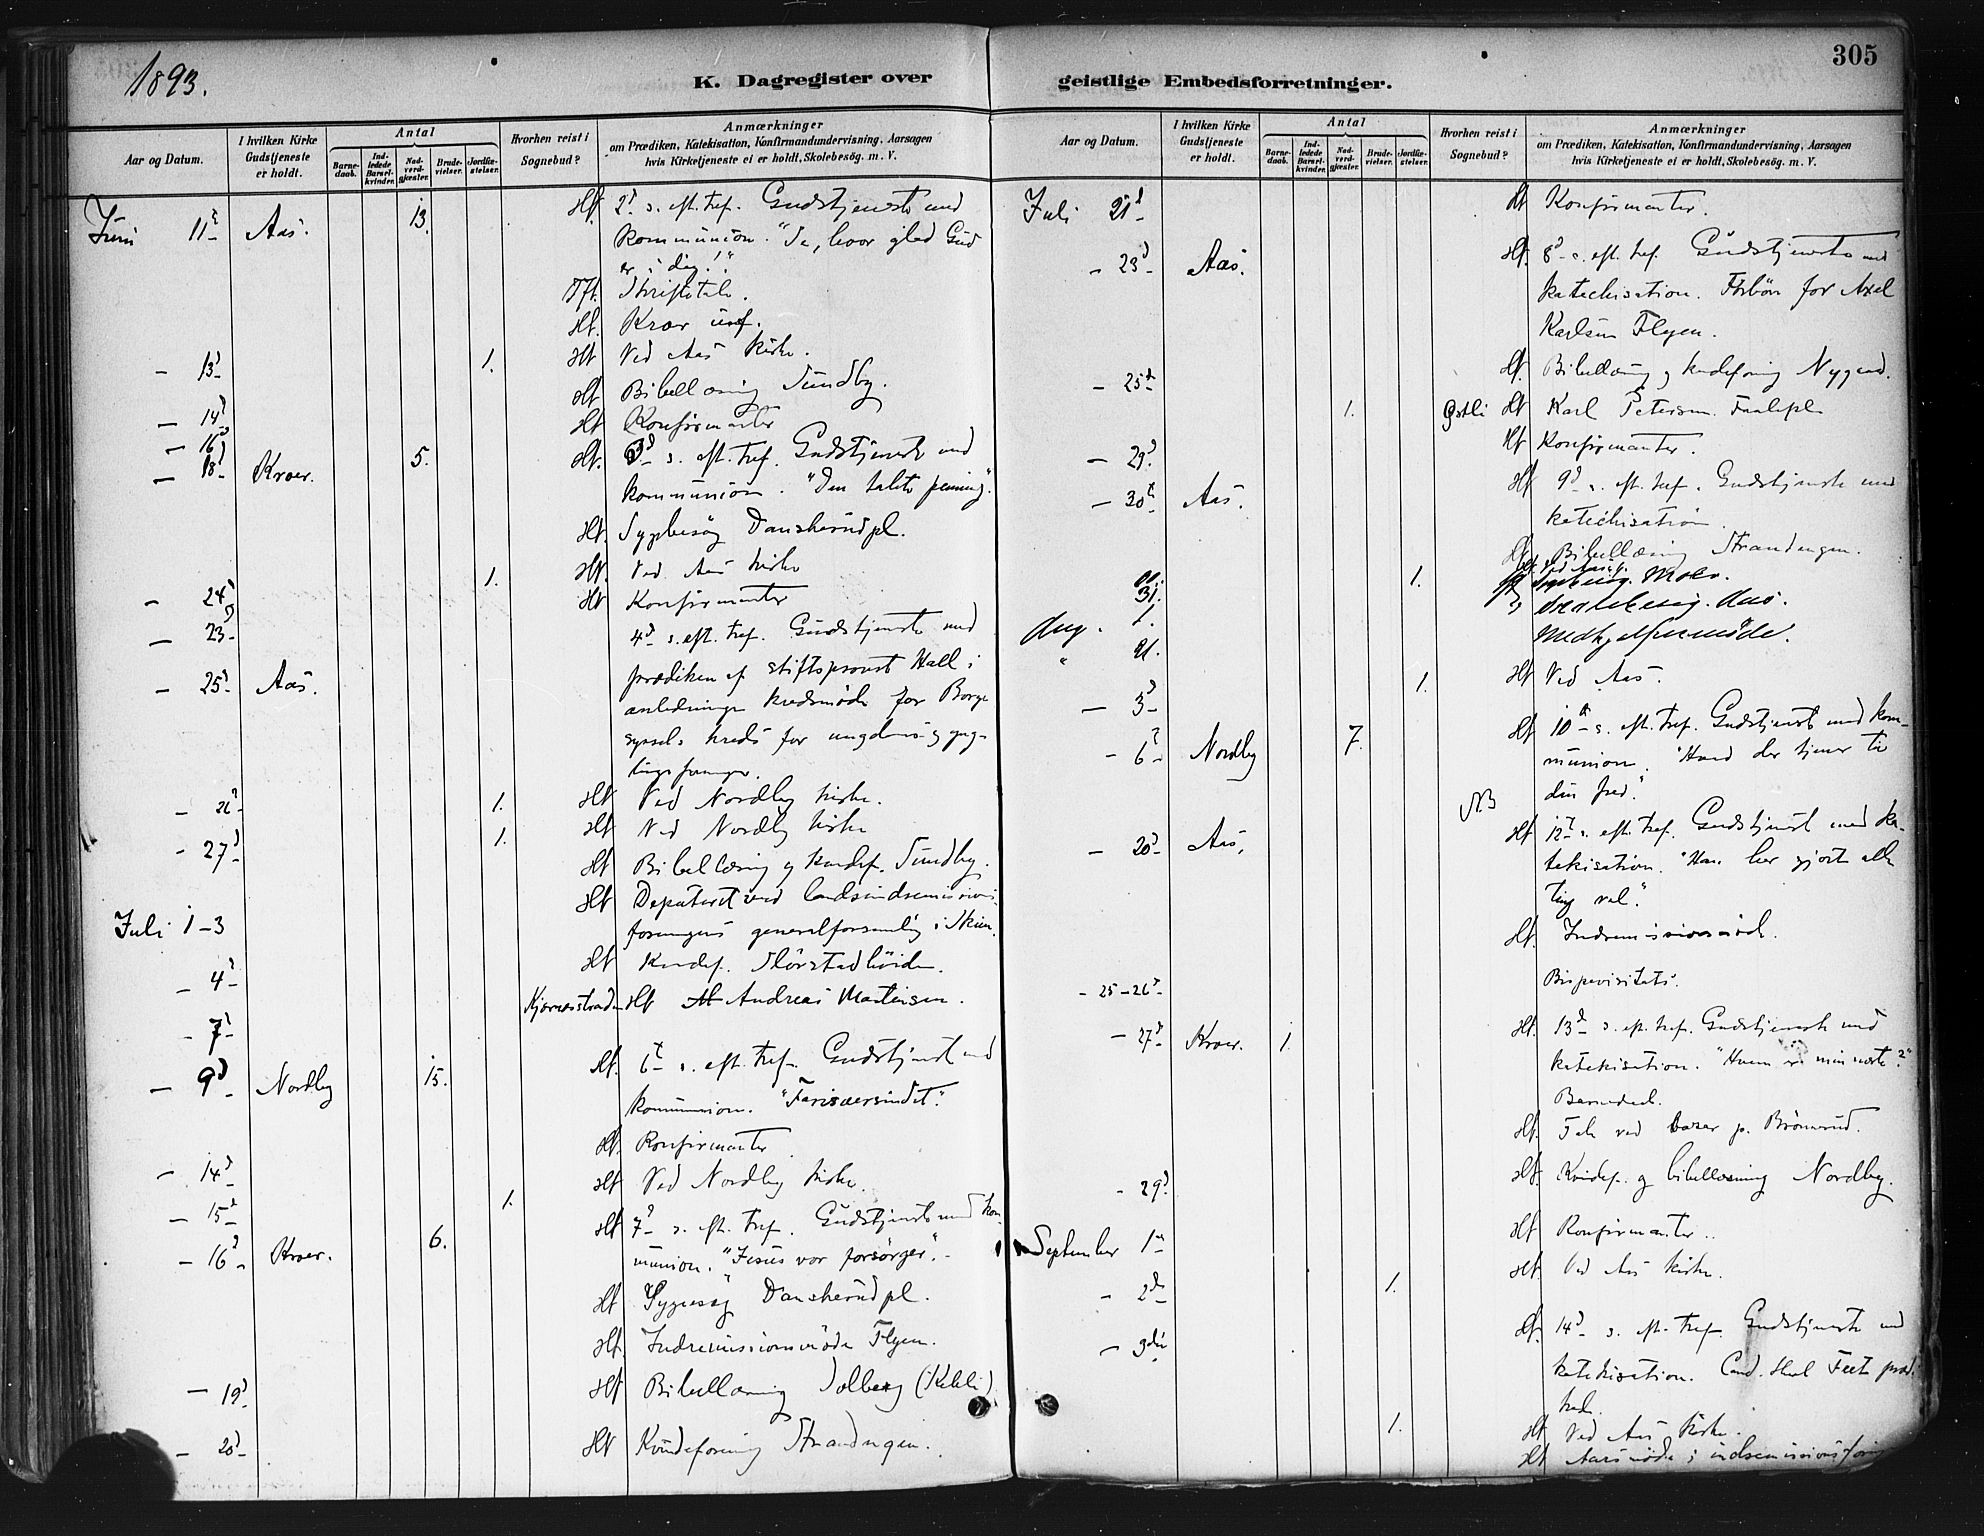 1893.
K. Dagregister over
Aar og Datum.
I hvilken Kirke Gudstjeneste er holdt.
Antal
Barne-daab.
Ind-ledede Barsel-kvinder.
Nad-verd-gjæster.
Brude-vielser.
Jordfæ-stelser.
Hvorhen reist i Sognebud?
Anmærkninger
om Prædiken, Katekisation, Konfirmandundervisning, Aarsagen
hvis Kirketjeneste ei er holdt, Skolebesög. m. V.
Juni 11 Aas. 13. Hf. 2d s. eft. tref. Gudstjeneste med
kommunion. "Se, hvor glad Gud
er i dag!"
Skriftetale.
Hf. Kroer
- 13 1. Hf Ved Aas kirke.
Hf Bibellæsning Sundby.
- 14 Hf Konfirmanter
- 16
- 18 Kroer. 5. Hf. 3d s. eft. tref. Gudstjeneste med
kommunion. "Den tabte penning".
Hf. Sygebesøg Danskerudpl.
1. Hf. Ved Aas kirke
- 24 Hf Konfirmanter
- 23 4d s. eft. tref. Gudstjeneste med
- 25 Aas. prædiken af stiftsprovst Hall i
anledning kredsmøde for Borge
syssels kreds for ungdoms og yng-
lingeforeninger.
- 26 1. Hf Ved Nordby kirke.
- 27 1. Hf Ved Nordby kirke
Hf Bibellæsning og kvindef. Sundby.
Hf Deputeret ved landsindremissions
Juli 1-3 foreningens generalforsamling i Skien.
- 4 Hf Kvindef.
- 7 Hf Andreas Martinsen.
- 9 Nordby 15. Hf. 6t s. eft. tref. Gudstjenest med
kommunion. "Farisæersindet".
Hf. Konfirmanter
- 14 Hf Ved Nordby kirke
- 15 1.
- 16 Kroer. 6. Hf 7d s. eft. tref. Gudstjeneste med kom
munion. "Jesus vor forsørger".
Hf Sygebesøg Danskerudpl.
Hf. Indremissionsmøde Flyen.
- 19 Hf Bibellæsning Solberg
- 20 Hf Kvindeforening Strandengen.
305
geistlige Embedsforretninger.
Aar og Datum.
I hvilken Kirke Gudstjeneste er holdt.
Antal
Barne-daab.
Ind-ledede Barsel-kvinder.
Nad-verd-gjæster.
Brude-vielser.
Jordfæ-stelser.
Hvorhen reist i Sognebud?
Anmærkninger
om Prædiken, Katekisation, Konfirmandundervisning, Aarsagen
hvis Kirketjeneste ei er holdt, Skolebesög. m. V.
Juli 21 Hf Konfirmanter.
- 23 Aas. Hf. 8d s. eft. tref. Gudstjeneste med
katechisation. Forbøn for Axel
Karlsen Flyen.
- 25 Hf. Bibellæsning og kvindeforening Nygaard.
1. Østli Hf Karl Petersen
- 29 Hf Konfirmanter.
- 30 Aas. Hf 9d s. eft. tref. Gudstjeneste med
katechisation.
Hf Bibellæsning Strandengen.
31. 1. Moer.
Aug. 1. Aas.
Medhjælpermøde.
- 3 1. Hf Ved Aas.
- 6 Nordby 7. Hf 10d s. eft. tref. Gudstjeneste med kom-
munion. "Hvad der tjener til
din fred."
NB
- 20 Aas. Hf 12t s. eft. tref. Gudstjenest med ka-
tekisation. "Han har gjort alle
ting vel".
Hf. Indremissionsmøde.
- 25-26 Bispevisitats.
- 27 Kroer. 1. Hf. 13d s. eft. tref. Gudstjeneste med
katekisation. "Hvem er min næste?"
Barnedaab.
Hf. Tale ved bazar p. Brønnerud.
- 29 Hf. Kvindef. og bibellæsning Nordby.
September 1 Hf Konfirmanter..
- 2 1. Hf. Ved Aas kirke.
- 3die Hf. 14d s. eft. tref. Gudstjeneste med
katekisation. Cand.
1. Hf Ved Aas kirke.
Hf Aarsmøde i indremissionsforen